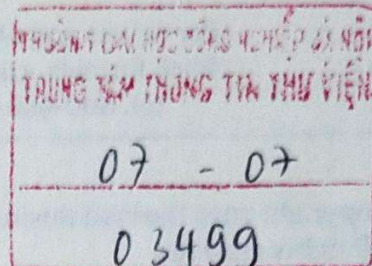 TRƯỜNG ĐẠI HỌC CÔNG NGHIỆP HÀ NỘI
TRUNG TÂM THÔNG TIN THƯ VIỆN
07 - 07
03499